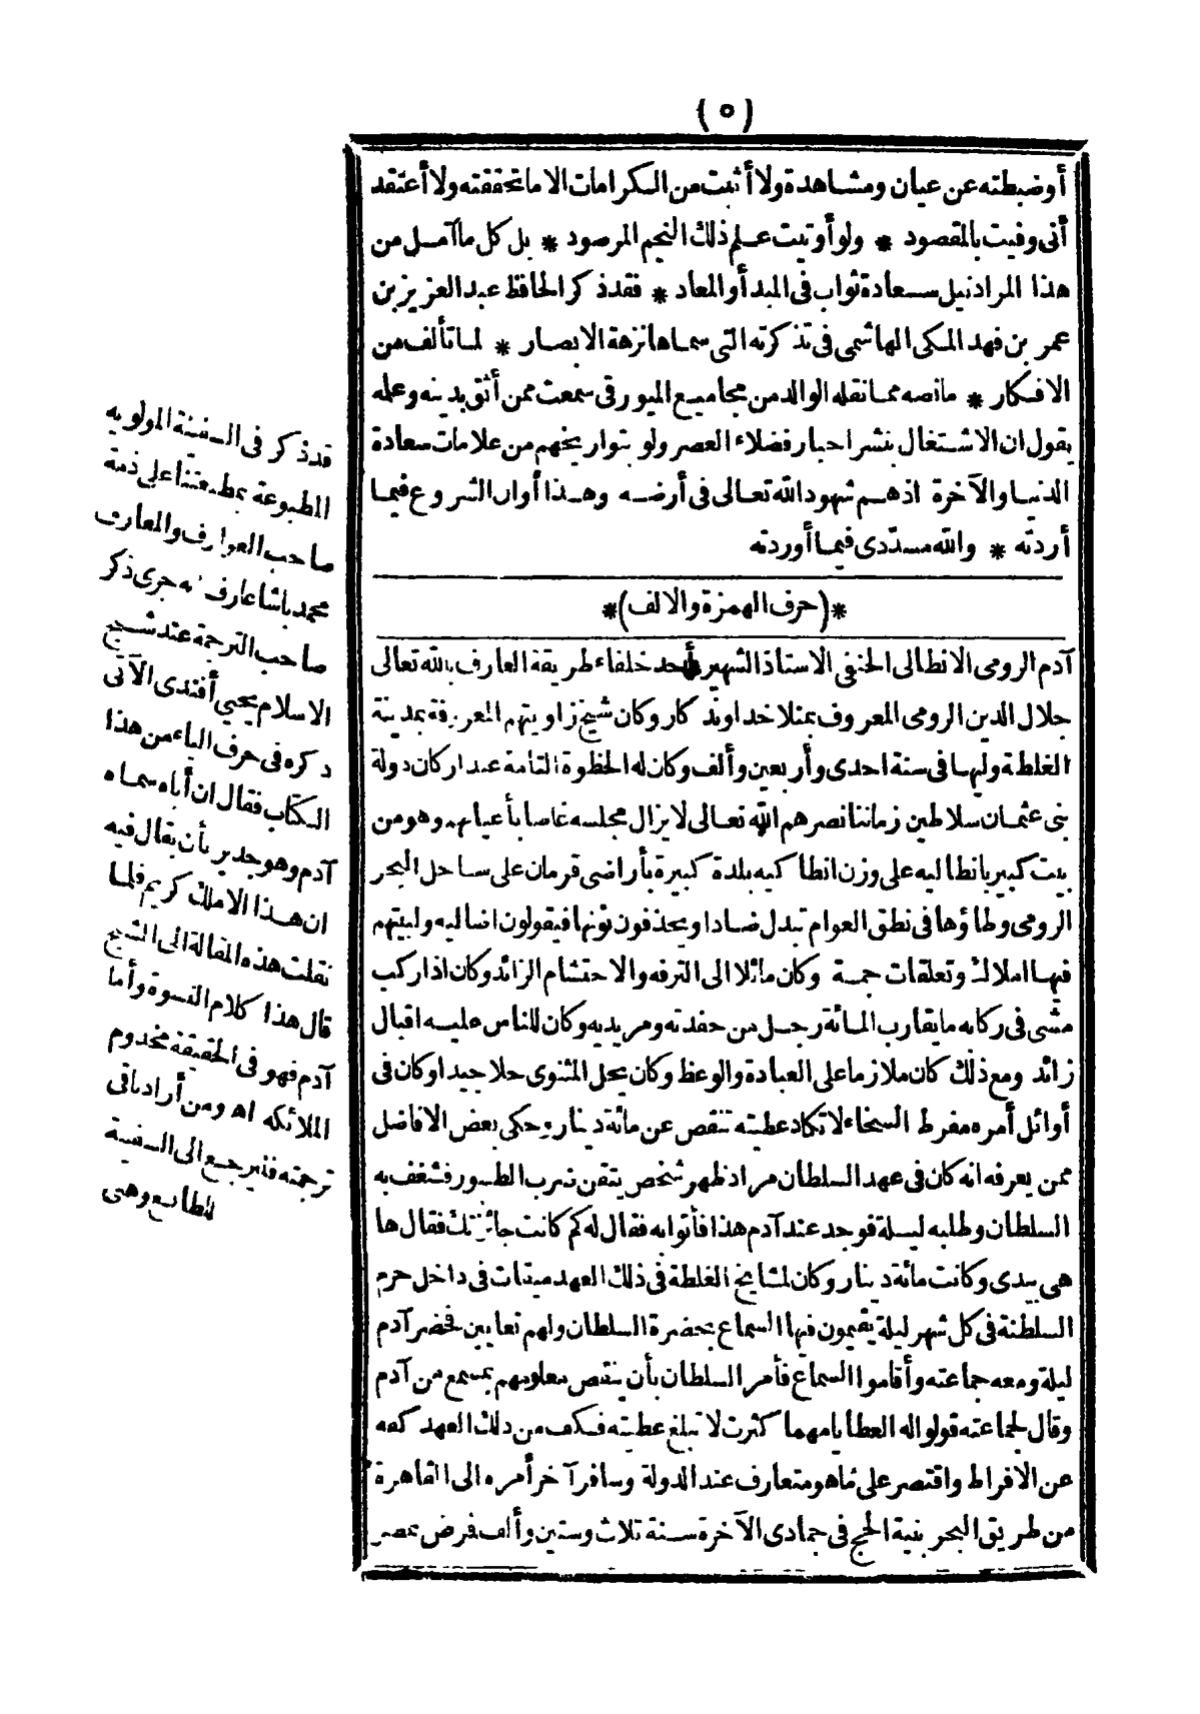 (٥)
أوضبطته عن عيان ومشاهدة ولا أثبت من الكرامات الا ما تحققته ولا أعتقد
أنى وفيت بالمقصود * ولو أوتيت علم ذلك النجم المرصود * بل كل ما آمل من
هذا المراد نيل سعادة ثواب فى المبدأ والمعاد * فقد ذكر الحافظ عبد العزيز بن
عمر بن فهد المكى الهاشمى فى تذكرته التى سماها نزهة الابصار * لما تألف من
الافكار * مانصه مما نقله الوالد من مجاميع الميورقى سمعت ممن أثق بدينه وعلمه
يقول ان الاشتغال بنشر اخبار فضلاء العصر ولو بتواريخهم من علامات سعادة
الدنيا والآخرة اذهم شهود الله تعالى فى أرضه وهذا أوان الشروع فيما
أردته * والله مسدّدى فيما أوردته
*(حرف الهمزة والالف)*
آدم الرومى الانطالى الحنفى الاستاذ الشهير أحد خلفاء طريقة العارف بالله تعالى
جلال الدين الرومى المعروف بمنلا خداوندكار وكان شيخ زاويتهم المعروفة بمدينة
الغلطة وليها فى سنة احدى وأربعين وألف وكان له الحظوة التامة عند اركان دولة
بنى عثمان سلاطين زماننا نصرهم الله تعالى لا يزال مجلسه غاصا بأعيانهم وهو من
بيت كبير بانطاليه على وزن انطاكيه بلدة كبيرة بأراضى قرمان على ساحل البحر
الرومى وطاؤها فى نطق العوام تبدل ضادا ويحذفون نونها فيقولون اضاليه ولبيتهم
فيها املاك وتعلقات جمة وكان مائلا الى الترفه والاحتشام الزائد وكان اذا ركب
مشى فى ركابه ما يقارب المائة رجل من حفدته ومريديه وكان للناس عليه اقبال
زائد ومع ذلك كان ملازما على العبادة والوعظ وكان يحل المثنوى حلا جيدا وكان فى
أوائل أمره مفرط السخاء لا تكاد عطيته تنقص عن مائة دينار وحكى بعض الافاضل
ممن يعرفه انه كان فى عهد السلطان مراد ظهر شخص يتقن ضرب الطنبور فشغف به
السلطان وطلبه ليلة فوجد عند آدم هذا فأتوا به فقال له كم كانت جائزتك فقال ها
هى بيدى وكانت مائة دينار وكان لمشايخ الغلطة فى ذلك العهد مبيتات فى داخل حرم
السلطنة فى كل شهر ليلة يقيمون فيها السماع بحضرة السلطان ولهم تعايين فحضر آدم
ليلة ومعه جماعته وأقاموا السماع فأمر السلطان بأن ينقص معلومهم بمسمع من آدم
وقال لجماعته قولوا له العطايا مهما كثرت لا تبلغ عطيته فكف من ذلك العهد كفه
عن الافراط واقتصر على ماهو متعارف عند الدولة وسافر آخر أمره الى القاهرة
من طريق البحر بنية الحج فى جمادى الآخرة سنة ثلاث وستين وألف فرض بمصر
قد ذكر فى السفينة المولويه
المطبوعة بمطبعتنا على ذمة
صاحب العوارف والمعارف
محمد باشا عارف انه جرى ذكر
صاحب الترجمة عند شيخ
الاسلام يحيى أفندى الآتى
ذكره فى حرف الياء من هذا
الكتاب فقال ان أباه سماه
آدم وهو جدير بأن يقال فيه
ان هذا الا ملك كريم فلما
نقلت هذه المقالة الى الشيخ
قال هذا كلام النسوة وأما
آدم فهو فى الحقيقة مخدوم
الملائكه اه ومن أراد باقى
ترجمته فليرجع الى السفينة
للطابع وهى